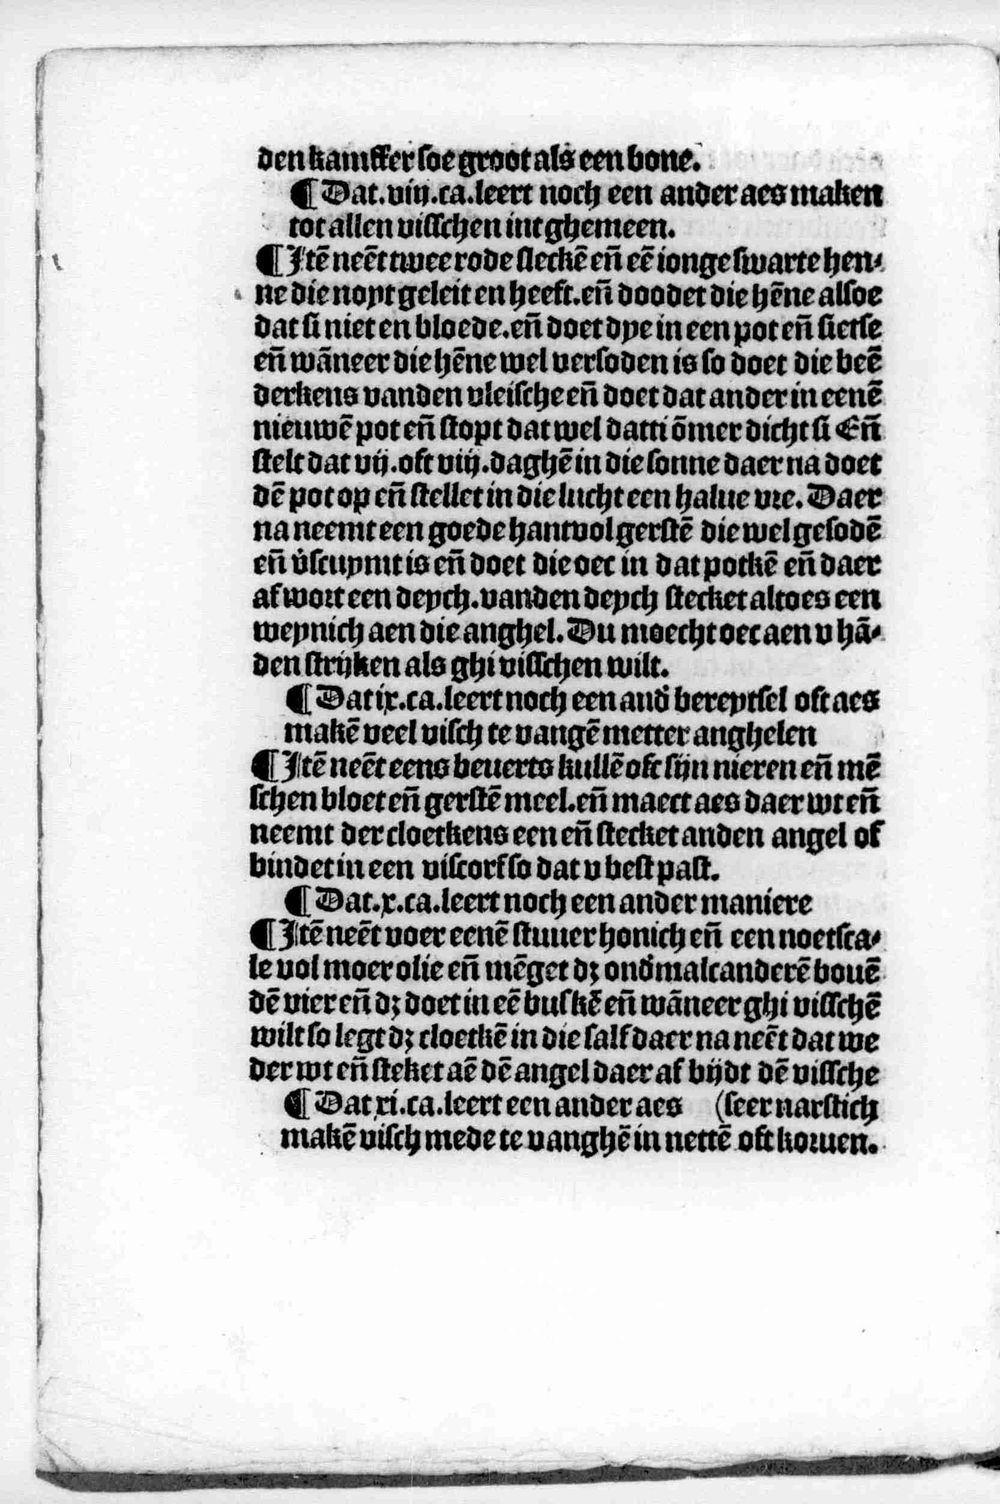 den kamffer soe groot als een bone.
¶ Dat .viij. ca. leert noch een ander aes maken
tot allen visschen int ghemeen.
¶ Itē neēt twee rode sleckē eñ eē ionge swarte hen⸗
ne die noyt geleit en heeft. eñ doodet die hēne alsoe
dat si niet en bloede. eñ doet dye in een pot eñ sietse
eñ wāneer die hēne wel versoden is so doet die beē
derkens vanden vleische eñ doet dat ander in eenē
nieuwē pot eñ stopt dat wel datti ōmer dicht si Eñ
stelt dat vij. oft viij. daghē in die sonne daer na doet
dē pot op eñ stellet in die lucht een halue vre. Daer
na neemt een goede hantvol gerstē die wel gesodē
eñ v̓scuymt is eñ doet die oec in dat potkē eñ daer
af wort een deych. vanden deych stecket altoes een
weynich aen die anghel. Du moecht oec aen v hā⸗
den strijken als ghi visschen wilt.
¶ Dat ix. ca. leert noch een and̓ bereytsel oft aes
makē veel visch te vangē metter anghelen
¶ Itē neēt eens beuerts kullē oft sijn nieren eñ mē
schen bloet eñ gerstē meel. eñ maect aes daer wt eñ
neemt der cloetkens een eñ stecket anden angel of
bindet in een viscorf so dat v best past.
¶ Dat .x. ca. leert noch een ander maniere
¶ Itē neēt voer eenē stuuer honich eñ een noetsca⸗
le vol moer olie eñ mēget dꝫ ond̓malcanderē bouē
dē vier eñ dꝫ doet in eē buskē eñ wāneer ghi visschē
wilt so legt dꝫ cloetkē in die salf daer na neēt dat we
der wt eñ steket aē dē angel daer af bijdt dē vissche
¶ Dat xi. ca. leert een ander aes (seer narstich
makē visch mede te vanghē in nettē oft koruen.